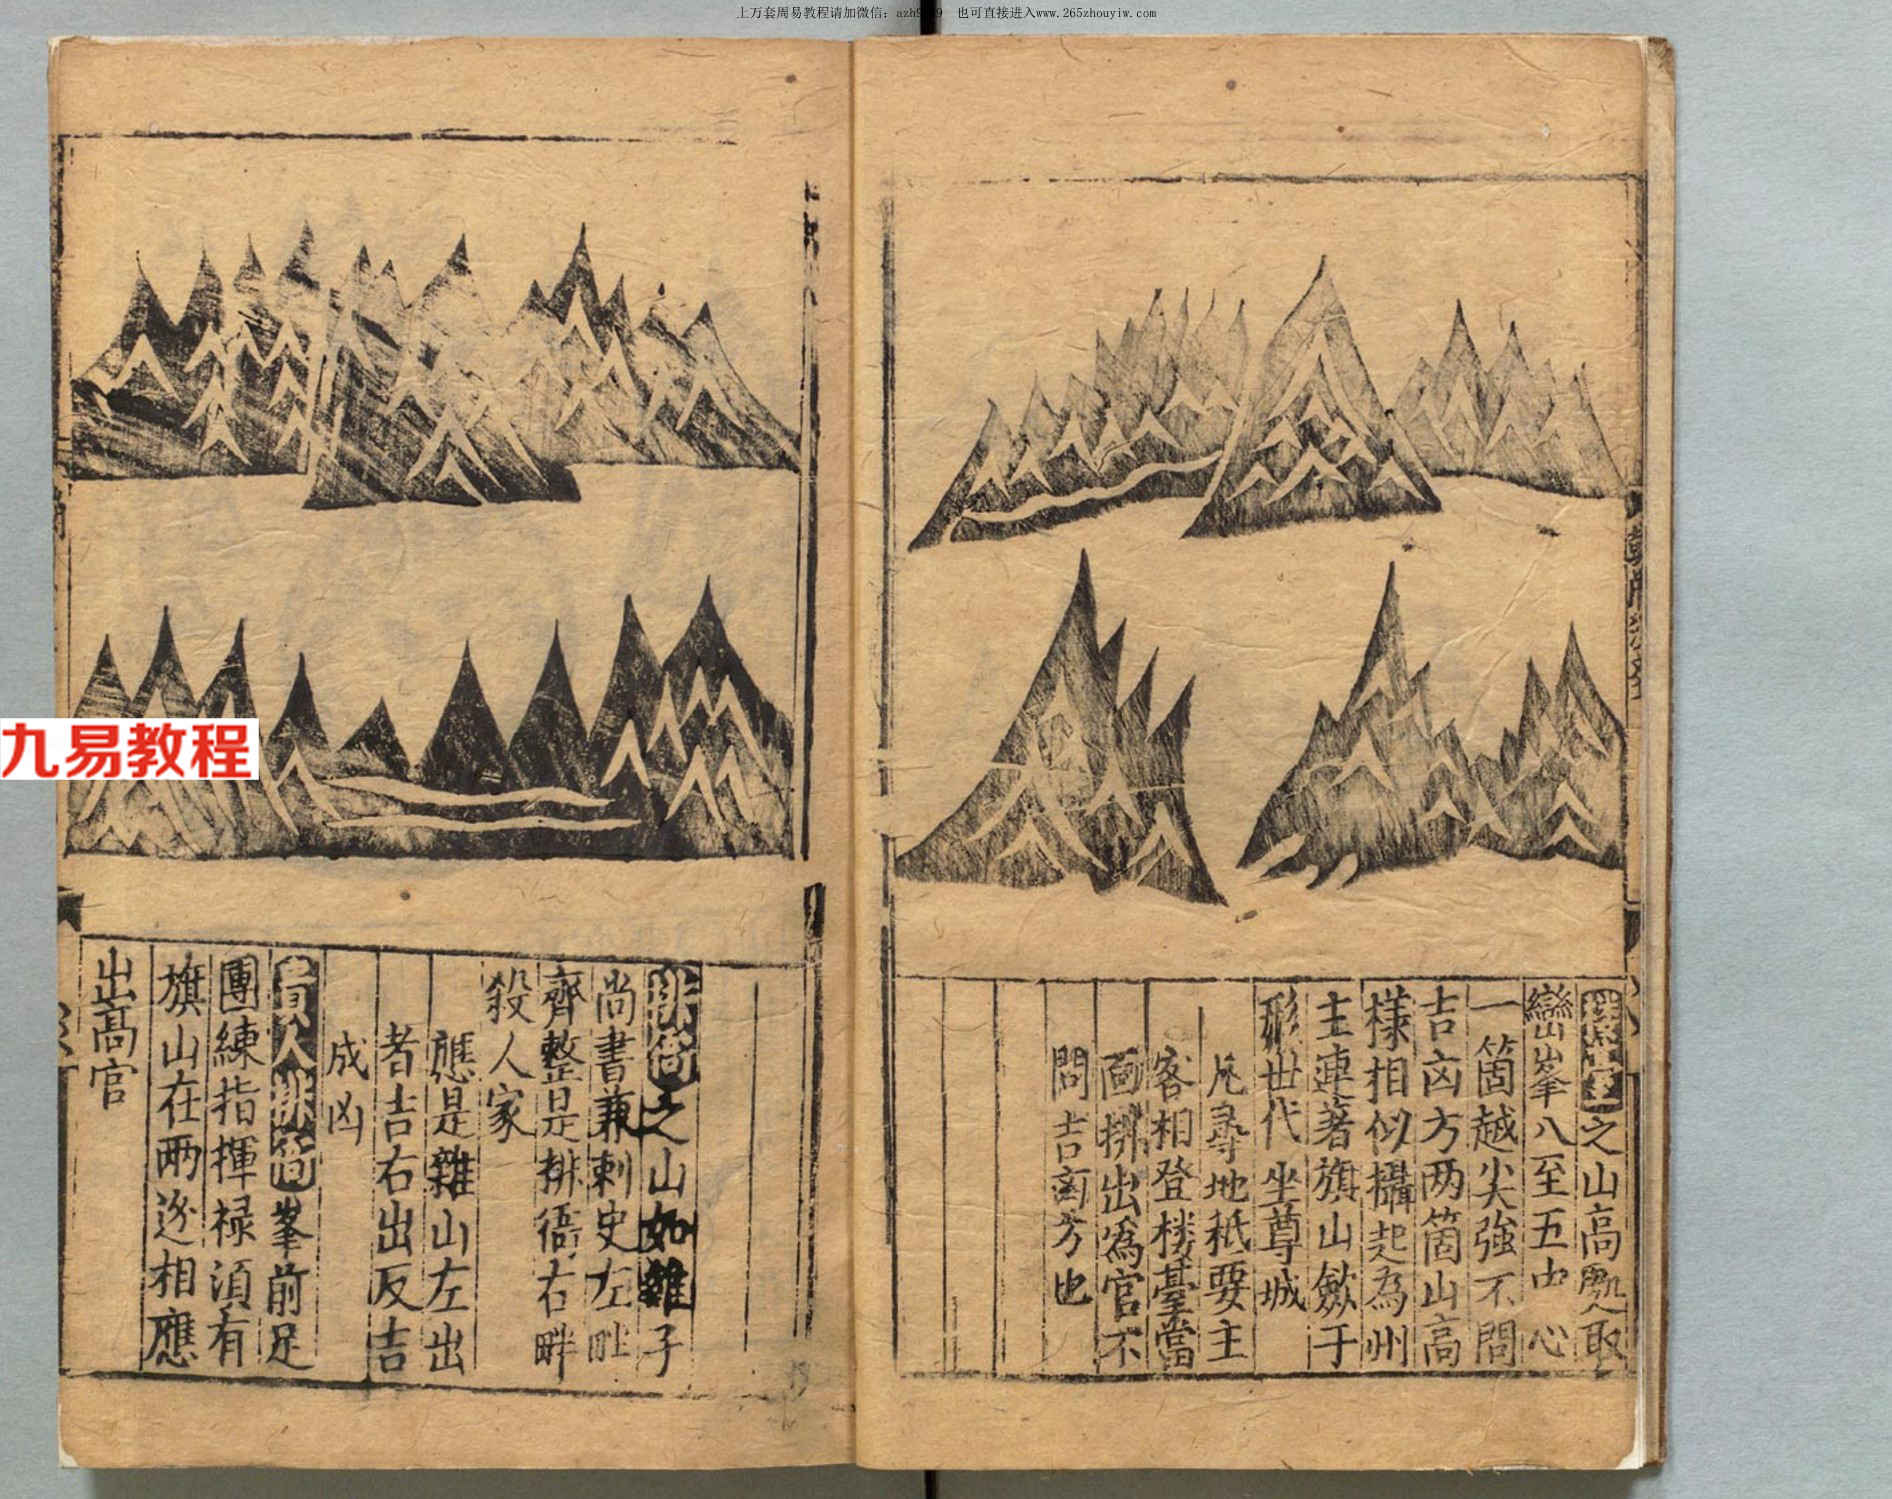 上万套周易教程请加微信：azh9 9 也可直接进入www.265zhouyiw.com
之山高取
巒峯八至五中心
一箇越尖強不問
吉凶方两箇山高
樣相似攝起為州
主連著旗山歛于
形世代坐尊城
凡尋地秖要主
客相登楼臺當
面排出為官不
問吉凶方也
排衙之山如雜子
尚書兼刺史左畔
齊整是排衙右畔
殺人家
態是雜山左出
者吉右出反吉
成凶
貴人排衙峯前足
團練指揮禄湏有
旗山在两邊相應
出高官
九易教程